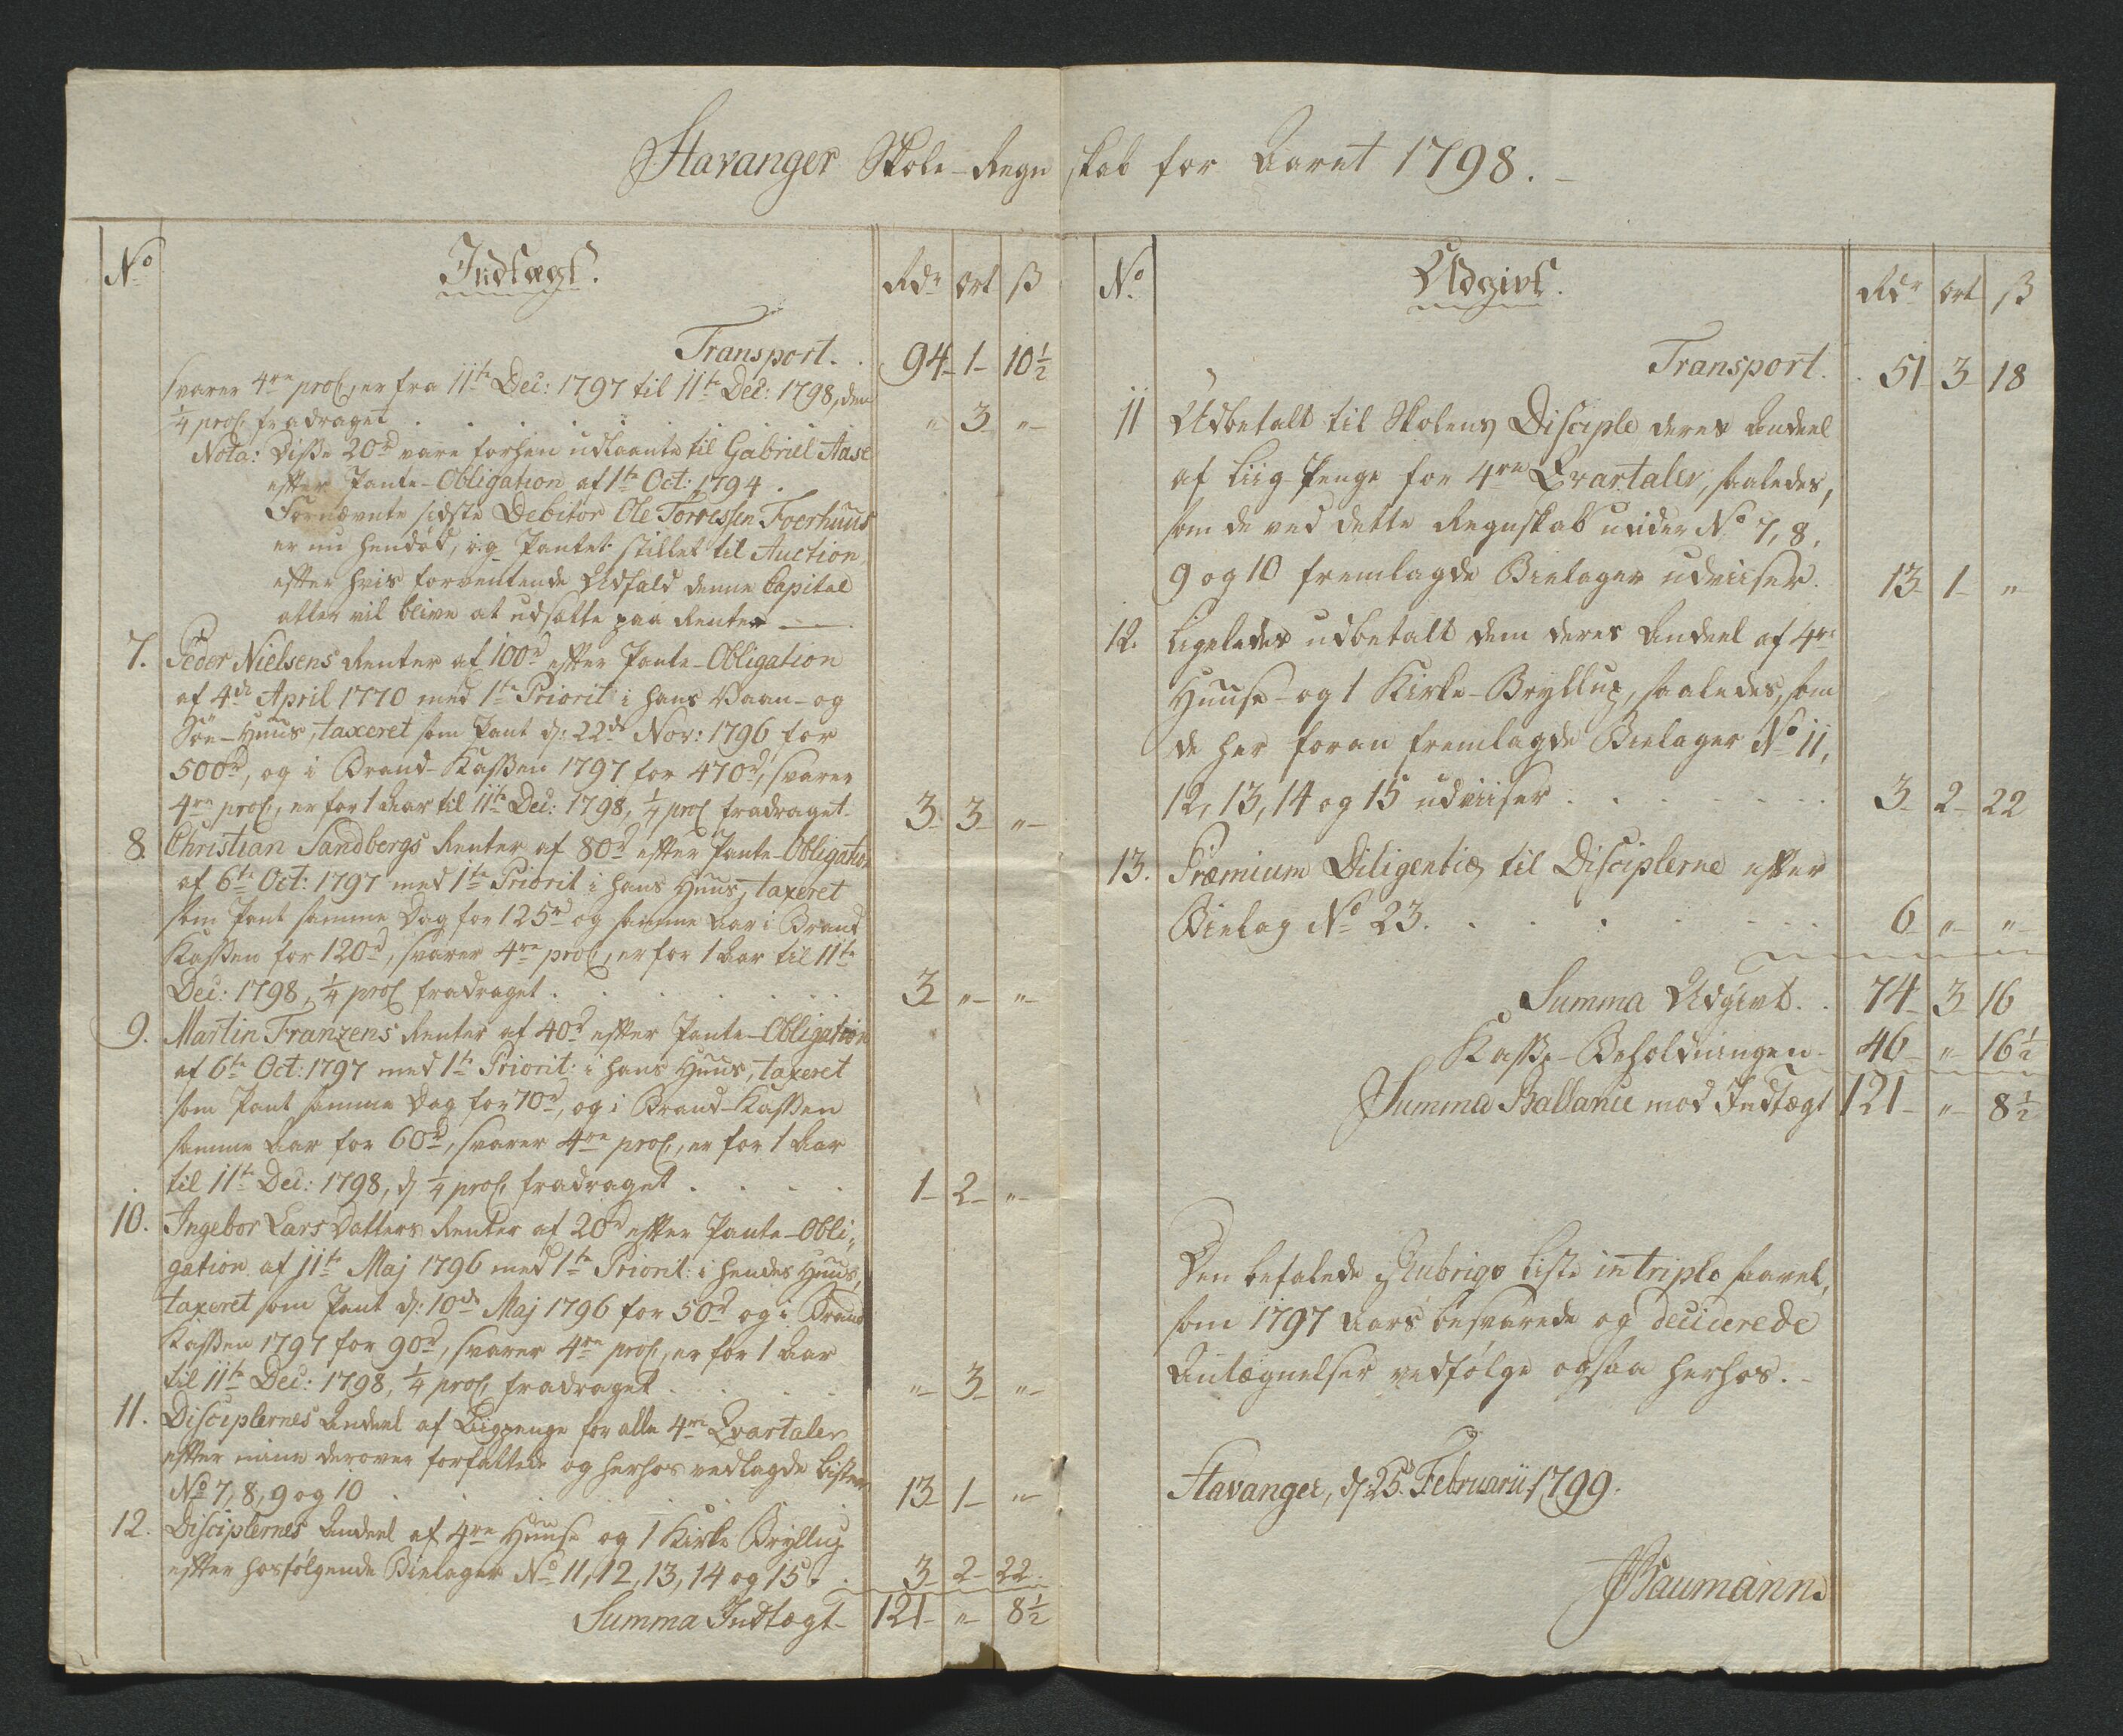 Stavanger Skole-Regnskab for Aaret 1798.
No
Indtægt.
Rdr ort ß
Transport. . 94 1 10½
svarer 4re proC, er fra 11te Dec: 1797 til 11te Dec: 1798, den
¼ proC. fradraget . . . . . . " 3 "
Nota: Disse 20rd vare forhen udlaante til Gabriel Aase
efter Pante-Obligation af 1te Oct: 1794.
Fornævnte sidste Debitor Ole Torressen Foerhuus
er nu hendød, og Pantet stillet til Auction,
efter hvis forventende Udfald denne Capital
atter vil blive at udsætte paa Renter
7. Peder Nielsens Renter af 100rd efter Pante-Obligation
af 4de April 1770 med 1te Priorit i hans Vaan- og
Söe-Huus, taxeret som Pant d: 22de Nov: 1796 for
500rd, og i Brand-Kassen 1797 for 470rd, svarer
4re proC, er for 1 Aar til 11te Dec: 1798, ¼ proC fradraget. 3 3 "
8. Christian Sandbergs Renter af 80rd efter Pante-Obligation
af 6te Oct: 1797 med 1te Priorit i hans Huus, taxeret
som Pant samme Dag for 125rd og samme Aar i Brand
Kassen for 120rd, svarer 4re proC, er for 1 Aar til 11te
Dec: 1798, ¼ proC fradraget . . . . . . 3 " "
9. Martin Franzens Renter af 40rd efter Pante-Obligation
af 6te Oct: 1797 med 1te Priorit: i hans Huus, taxeret
som Pant samme Dag for 70rd, og i Brand-Kassen
samme Aar for 60rd, svarer 4re proC, er for 1 Aar
til 11te Dec: 1798, d ¼ proC. fradraget . . . . 1 2 "
10. Ingebor Lars Datters Renter af 20rd efter Pante-Obli-
gation af 11te Maj 1796 med 1te Priorit: i hendes Huus,
taxeret som Pant d: 10de Maj 1796 for 50rd og i Brand
Kassen 1797 for 90rd, svarer 4re proC, er for 1 Aar
til 11te Dec: 1798, ¼ proC. fradraget . . . . " 3 "
11. Disciplernes Andeel af Liigpenge for alle 4re Qvartaler
efter mine derover forfattede og herhos vedlagde Lister
No 7, 8, 9 og 10 . . . . . . 13 1 "
12. Disciplernes Andeel af 4re Huuse og 1 Kirke Bryllup
efter hosfølgende Bielager No 11, 12, 13, 14 og 15. . 3 2 22
Summa Indtægt 121 " 8½
No
Udgivt.
Rdr ort ß
Transport. . 51 3 18
11 Udbetalt til Skolens Disciple deres Andeel
af Liig-Penge for 4re Qvartaler, saaledes,
som de ved dette Regnskab under No 7, 8,
9 og 10 fremlagde Bielager udviiser. 13 1 "
12. Ligeledes udbetalt dem deres Andeel af 4re
Huuse- og 1 Kirke-Bryllup, saaledes, som
de her foran fremlagde Bielager No 11,
12, 13, 14 og 15 udviiser . . . . . . 3 2 22
13. Præmium Diligentiæ til Disciplerne efter
Bielag No 23. . . . . . 6 " "
Summa Udgivt. . 74 3 16
Kasse-Beholdningen 46 " 16½
Summa Ballance mod Indtægt 121 " 8½
Den befalede Rubrigs Liste in triplo saavel,
som 1797 Aars besvarede og deciderede
Antægnelser vedfølge ogsaa herhos.
Stavanger, d: 25. Februarii 1799.
Baumann.